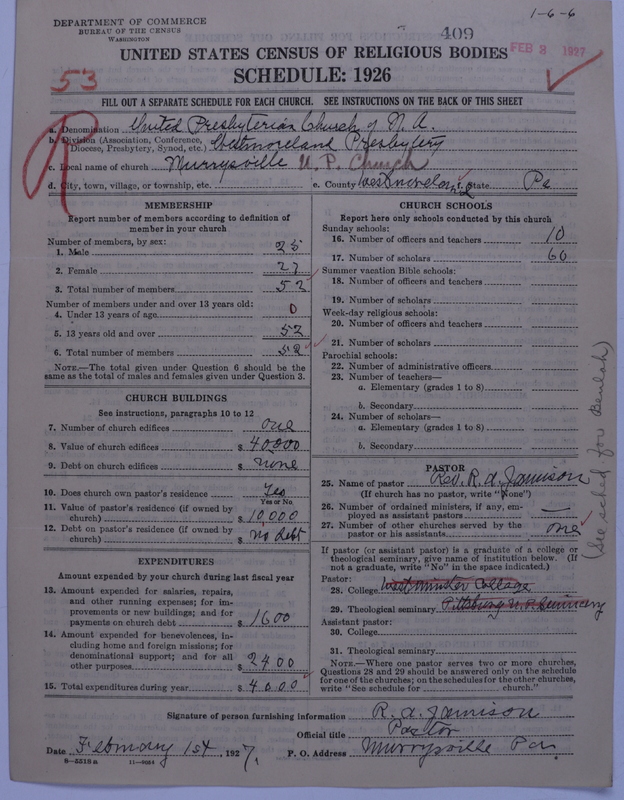 DEPARTMENT OF COMMERCE
BUREAU OF THE CENSUS
WASHINGTON
1-6-6
409
FEB 3 1927
UNITED STATES CENSUS OF RELIGIOUS BODIES
SCHEDULE: 1926
53
R
FILL OUT A SEPARATE SCHEDULE FOR EACH CHURCH. SEE INSTRUCTIONS ON THE BACK OF THIS SHEET
a. Denomination United Presbyterian Church of N. A.
b. Division (Association, Conference, Diocese, Presbytery, Synod, etc.) Westmoreland Presbytery
c. Local name of church Murrysville U. P. Church
d. City, town, village, or township, etc. e. County Westmoreland f. State Pa
MEMBERSHIP
Report number of members according to definition of
member in your church
Number of members, by sex:
1. Male 25
2. Female 27
3. Total number of members 52
Number of members under and over 13 years old:
4. Under 13 years of age 0
5. 13 years old and over 52
6. Total number of members 52
NOTE.—The total given under Question 6 should be the
same as the total of males and females given under Question 3.
CHURCH BUILDINGS
See instructions, paragraphs 10 to 12
7. Number of church edifices one
8. Value of church edifices $ 40000
9. Debt on church edifices $ none
10. Does church own pastor's residence Yes
Yes or No
11. Value of pastor's residence (if owned by
church) $ 10,000
12. Debt on pastor's residence (if owned by
church) $ no debt
EXPENDITURES
Amount expended by your church during last fiscal year
13. Amount expended for salaries, repairs,
and other running expenses; for im-
provements or new buildings; and for
payments on church debt $ 1600
14. Amount expended for benevolences, in-
cluding home and foreign missions; for
denominational support; and for all
other purposes $ 2400
15. Total expenditures during year $ 4000
CHURCH SCHOOLS
Report here only schools conducted by this church
Sunday schools:
16. Number of officers and teachers 10
17. Number of scholars 60
Summer vacation Bible schools:
18. Number of officers and teachers
19. Number of scholars
Week-day religious schools:
20. Number of officers and teachers
21. Number of scholars
Parochial schools:
22. Number of administrative officers
23. Number of teachers—
a. Elementary (grades 1 to 8)
b. Secondary
24. Number of scholars—
a. Elementary (grades 1 to 8)
b. Secondary
PASTOR
25. Name of pastor Rev. R. A. Jamison
(If church has no pastor, write "None")
26. Number of ordained ministers, if any, em-
ployed as assistant pastors —
27. Number of other churches served by the
pastor or his assistants one
If pastor (or assistant pastor) is a graduate of a college or
theological seminary, give name of institution below. (If
not a graduate, write "No" in the space indicated.)
Pastor:
28. College Westminster College
29. Theological seminary Pittsburg U. P. Seminary
Assistant pastor:
30. College
31. Theological seminary
NOTE.—Where one pastor serves two or more churches,
Questions 28 and 29 should be answered only on the schedule
for one of the churches; on the schedules for the other churches,
write "See schedule for church."
(See sched for Beulah)
Signature of person furnishing information R. A. Jamison
Official title Pastor
Date February 1st, 1927. P. O. Address Murrysville Pa
8-5518a 11-9054